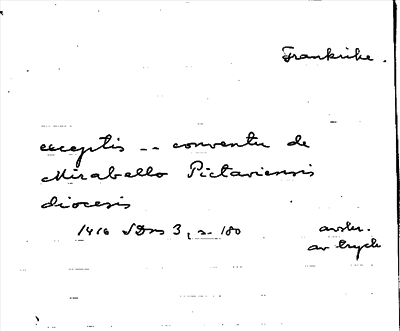 Frankrike.
exceptis -- conventu de
Mirabello Pictaviensis
diocesis
1416 SDns 3, s. 180
avskr.
av tryck